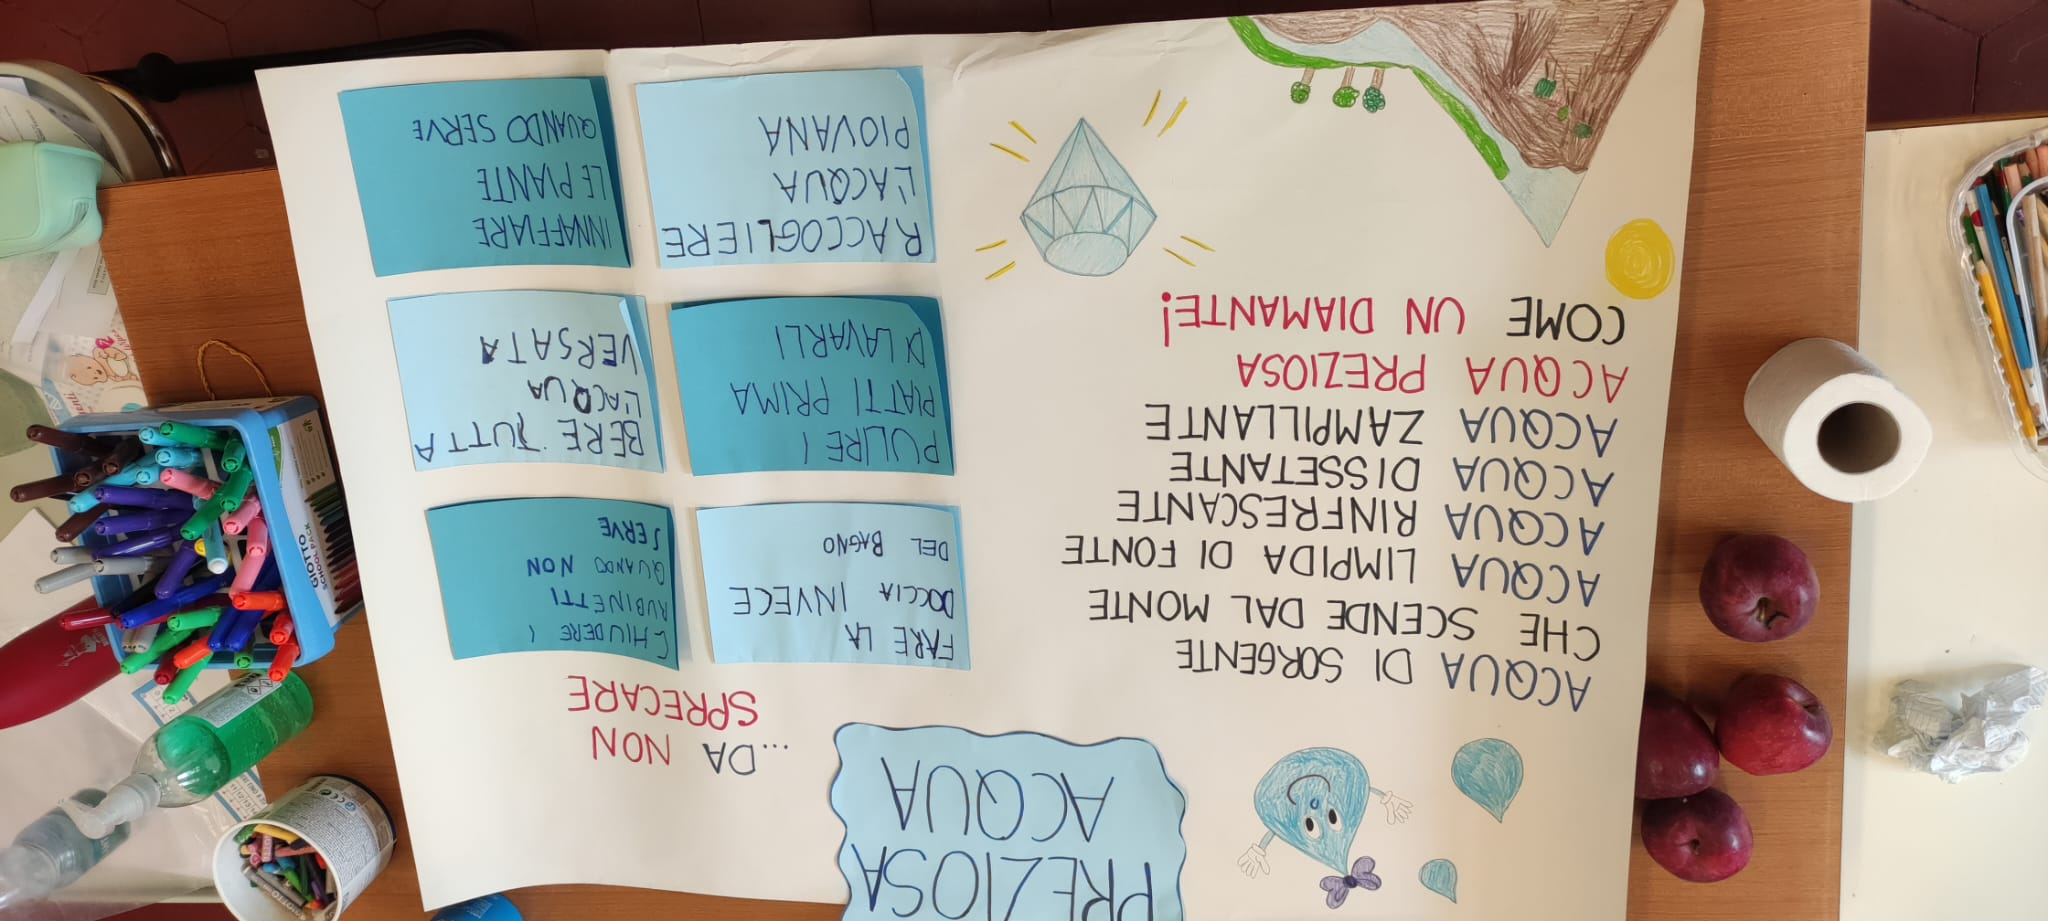 PREZIOSA
ACQUA
ACQUA DI SORGENTE
CHE SCENDE DAL MONTE
ACQUA LIMPIDA DI FONTE
ACQUA RINFRESCANTE
ACQUA DISSETANTE
ACQUA ZAMPILLANTE
ACQUA PREZIOSA
COME UN DIAMANTE!
...DA NON
SPRECARE
FARE LA
DOCCIA INVECE
DEL BAGNO
CHIUDERE I
RUBINETTI
QUANDO NON
SERVE
PULIRE I
PIATTI PRIMA
DI LAVARLI
BERE TUTTA
L'ACQUA
VERSATA
RACCOGLIERE
L'ACQUA
PIOVANA
INNAFFIARE
LE PIANTE
QUANDO SERVE
GIOTTO
SCHOOLPACK